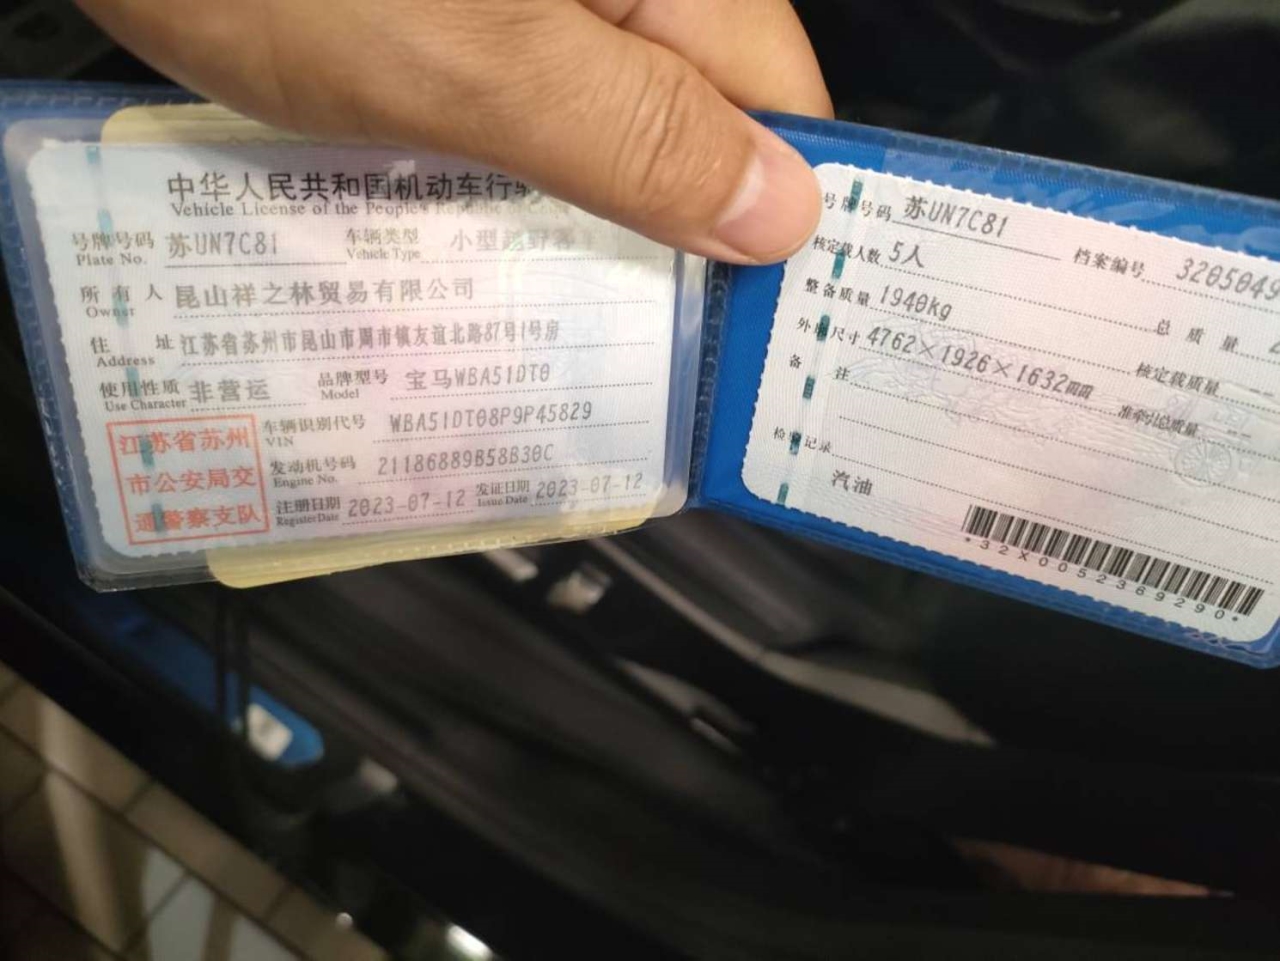 中华人民共和国机动车行驶
Vehicle License of the People's Republic of China
号牌号码 苏UN7C81 车辆类型 小型越野客车
Plate No. Vehicle Type
所有人 昆山祥之林贸易有限公司
Owner
住址 江苏省苏州市昆山市周市镇友谊北路87号1号房
Address
使用性质 非营运 品牌型号 宝马WBA51DT0
Use Character Model
江苏省苏州
市公安局交
通警察支队
车辆识别代号 WBA51DT08P9P45829
VIN
发动机号码 21186889B58B30C
Engine No.
注册日期 2023-07-12 发证日期 2023-07-12
Register Date Issue Date
号牌号码 苏UN7C81 档案编号 3205049
核定载人数 5人 总质量
整备质量 1940kg 核定载质量 --
外廓尺寸 4762×1926×1632mm 准牵引总质量 --
备注
检验记录
汽油
*32X0052369290*